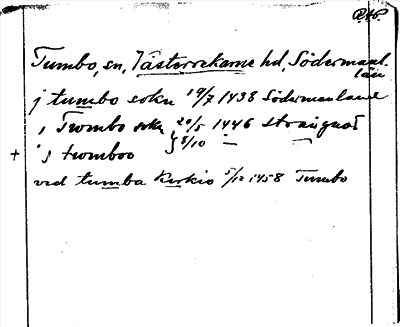 RAp.
Tumbo, sn, Västerrekarne hd, Södermanl.
län
j tumbo sokn 19/7 1438 Södermanland
i Trombo sokn 20/5 1446 Strängnäs
+ j tromboo } 8/10 — —
ved tumba kirkio 5/12 1458 Tumbo